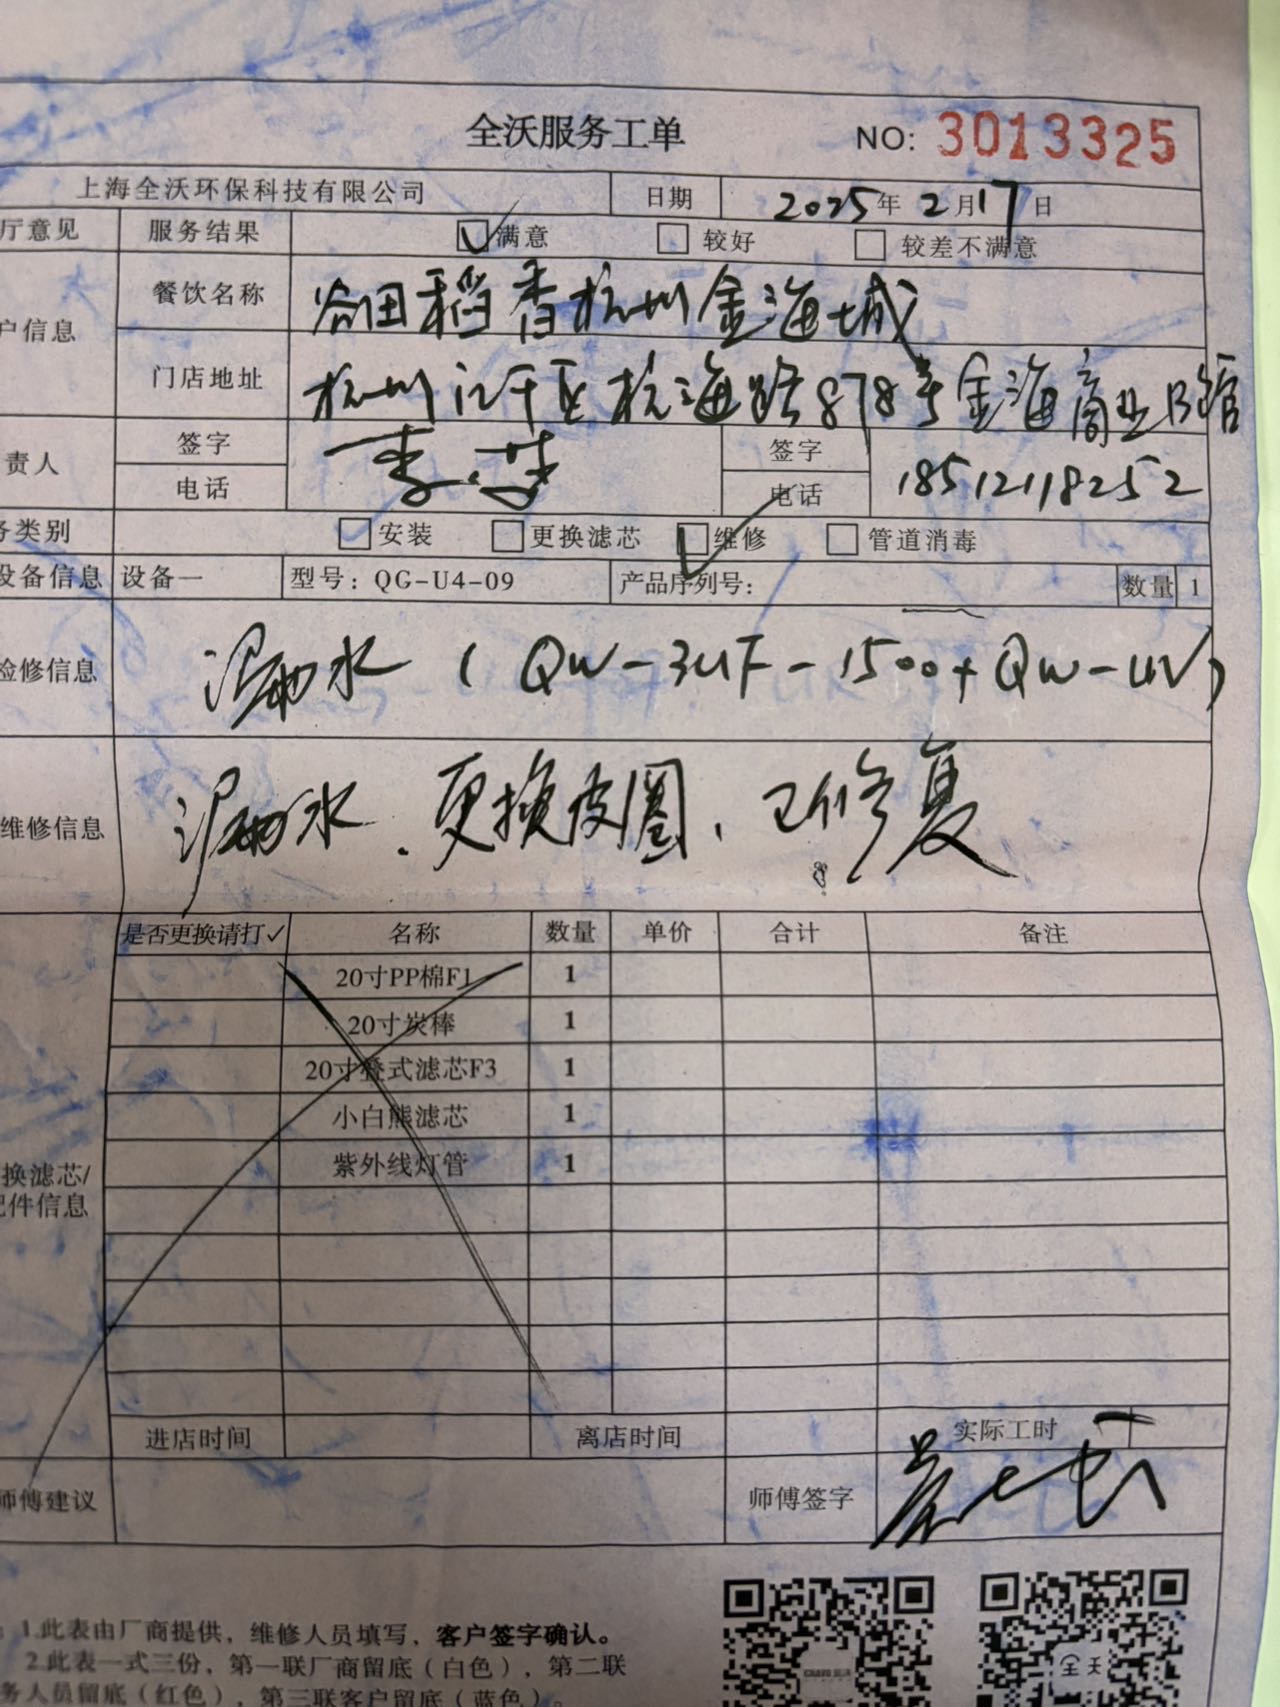 全沃服务工单 NO: 3013325
上海全沃环保科技有限公司 日期 2025年2月17日
厅意见 服务结果 满意 较好 较差不满意
户信息 餐饮名称 谷田稻香杭州金海城
门店地址 杭州江干区杭海路878号金海商业B馆
责人 签字 李 签字
电话 电话 18512118252
务类别 安装 更换滤芯 维修 管道消毒
设备信息 设备一 型号：QG-U4-09 产品序列号： 数量 1
检修信息 漏水（QW-3UF-1500+QW-UV）
维修信息 漏水．更换皮圈，已修复
是否更换请打✓ 名称 数量 单价 合计 备注
20寸PP棉F1 1
20寸炭棒 1
20寸叠式滤芯F3 1
小白熊滤芯 1
紫外线灯管 1
换滤芯/
配件信息
进店时间 离店时间 实际工时
师傅建议 师傅签字
：1.此表由厂商提供，维修人员填写，客户签字确认。
2.此表一式三份，第一联厂商留底（白色），第二联
务人员留底（红色），第三联客户留底（蓝色）。